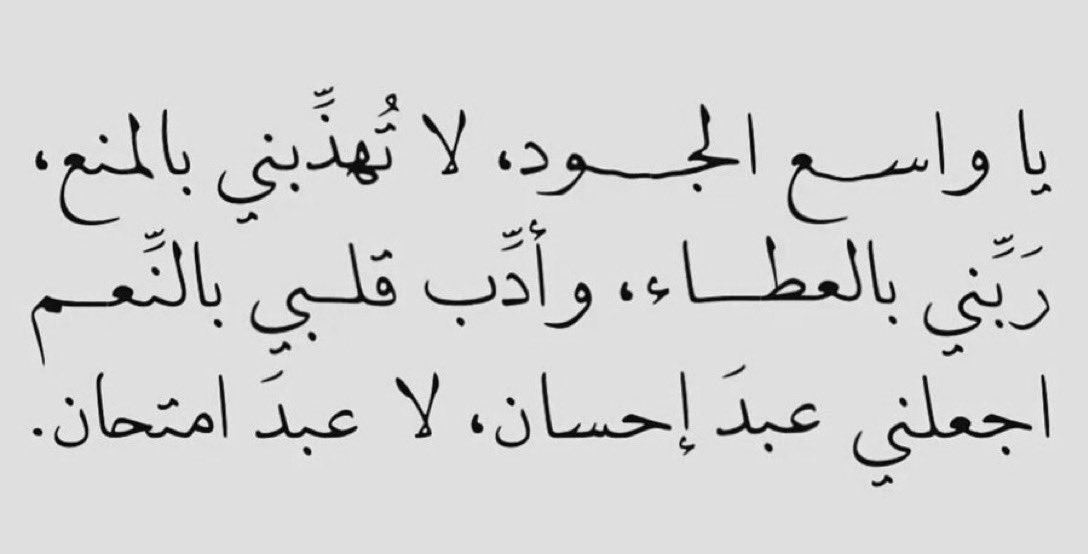 يا واسع الجود، لا تُهذِّبني بالمنع،
رَبِّني بالعطاء، وأدِّب قلبي بالنِّعم
اجعلني عبدَ إحسان، لا عبدَ امتحان.